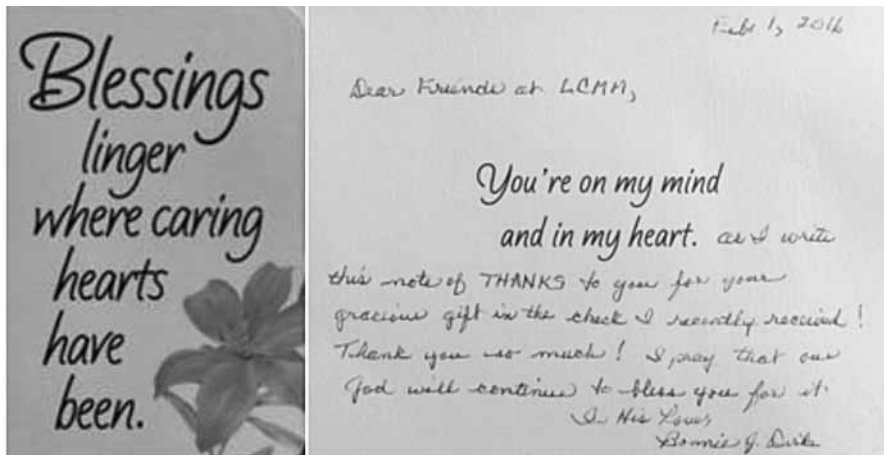 Blessings
linger
where caring
hearts
have
been.
Feb 1, 2016
Dear Friends at LCMM,
You're on my mind
and in my heart. as I write
this note of THANKS to you for your
gracious gift in the check I recently received!
Thank you so much! I pray that our
God will continue to bless you for it.
In His Love,
Bonnie J.